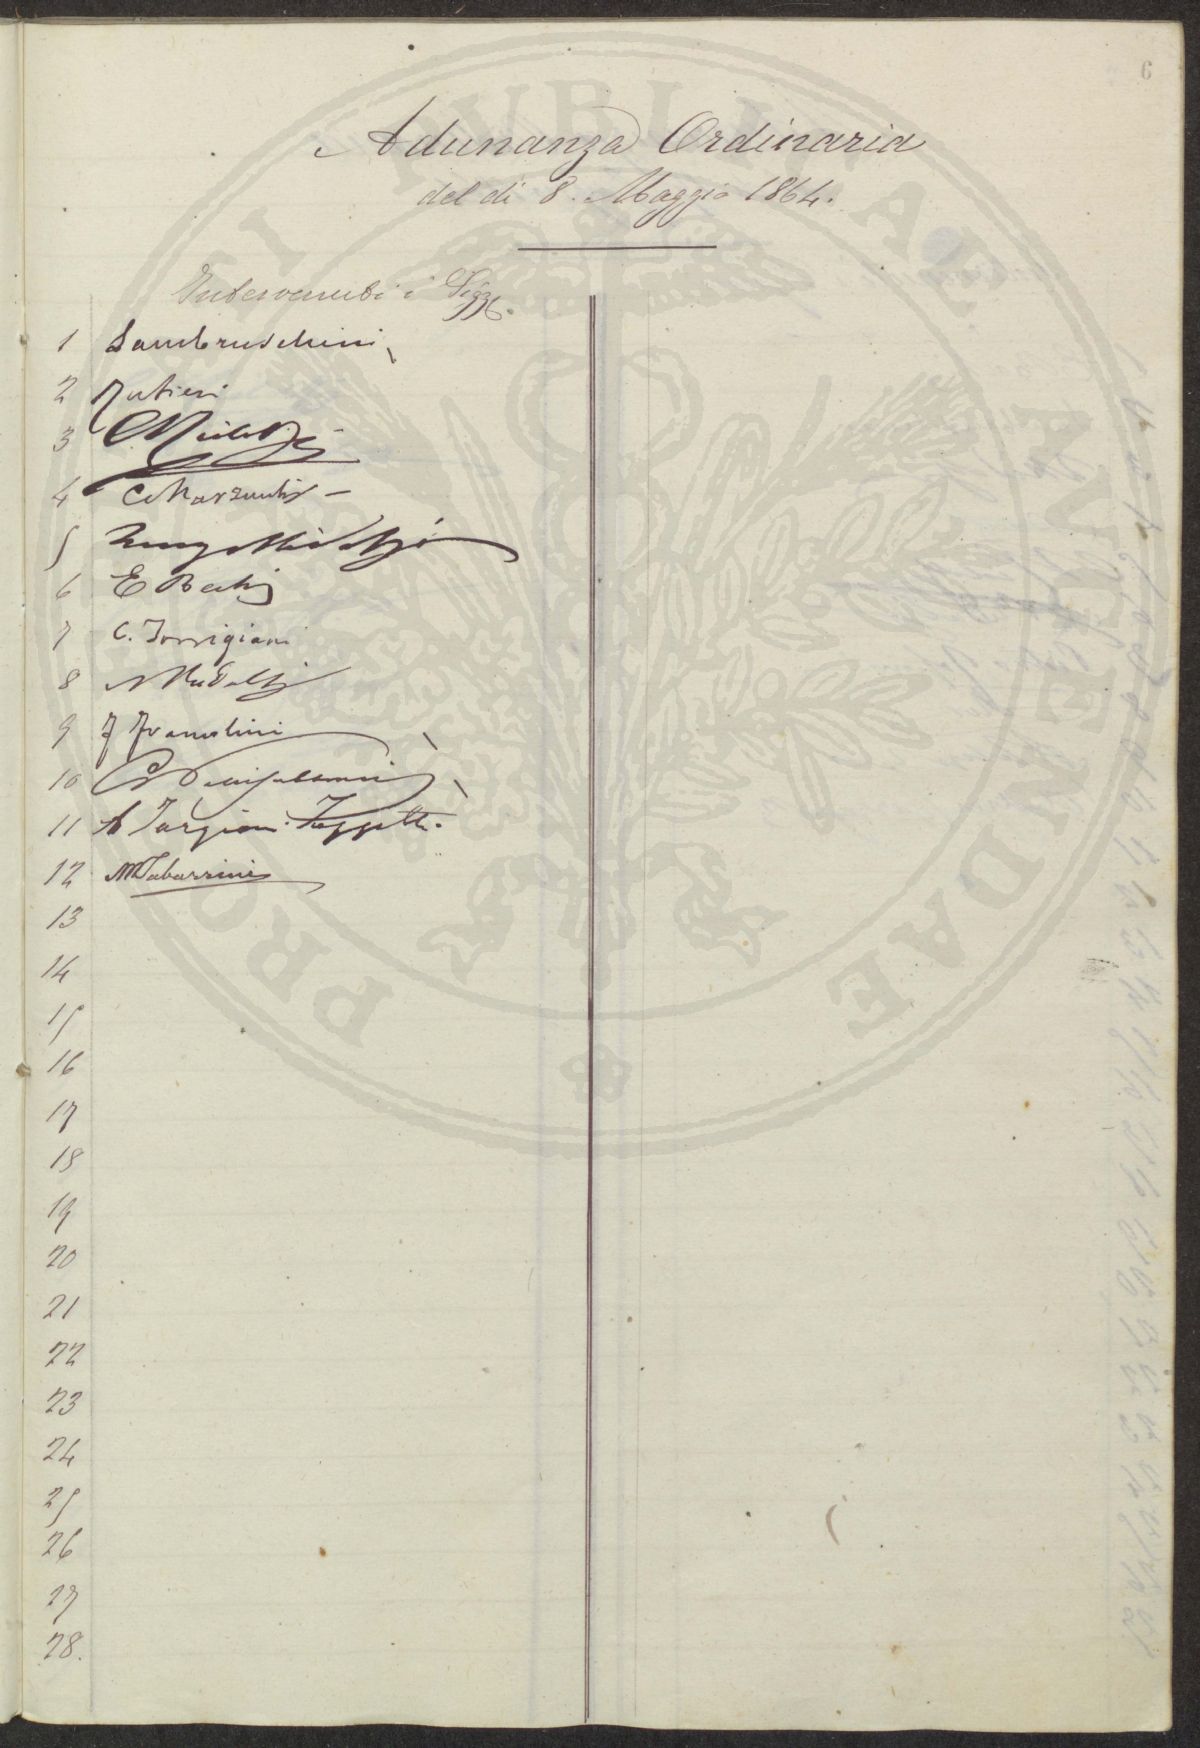 6
Adunanza Ordinaria
del dì 8. Maggio 1864.
Intervenuti i Sigg.
1 Lambruschini
2 Rubieri
3
4 C Marzucchi
5
6 E Bechi
7 C. Torrigiani
8
9 F Franolini
10
11 A Targioni Tozzetti.
12 M Tabarrini
13
14
15
16
17
18
19
20
21
22
23
24
25
26
27
28.
PUBLICAE FELICITATI PROVEHENDAE